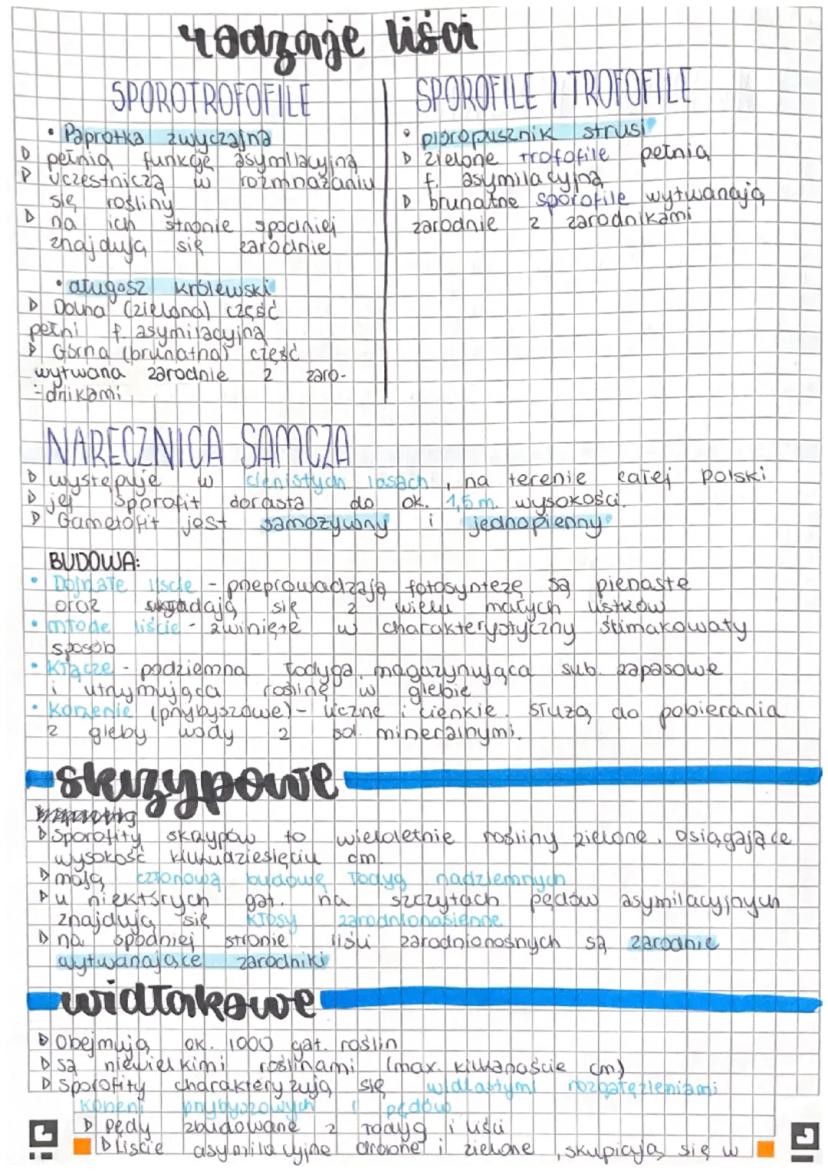 rodzaje liści
SPOROTROFOFILE
• Paprotka zwyczajna
▷ pełnią funkcję asymilacyjną
▷ uczestniczą w rozmnażaniu
się rośliny
▷ na ich stronie spodniej
znajdują się zarodnie
• długosz królewski
▷ Dolna (zielona) część
pełni f. asymilacyjną
▷ Górna (brunatna) część
wytwarza zarodnie z zaro-
-dnikami
SPOROFILE I TROFOFILE
• pióropusznik strusi
▷ zielone trofofile pełnią
f. asymilacyjną
▷ brunatne sporofile wytwarzają
zarodnie z zarodnikami
NARECZNICA SAMCZA
▷ występuje w cienistych lasach, na terenie całej polski
▷ jej sporofit dorasta do ok. 1,5 m. wysokości.
▷ Gametofit jest samożywny i jednopienny
BUDOWA:
• Dojrzałe liście - przeprowadzają fotosyntezę, są pierzaste
oraz składają się z wielu małych listków
• młode liście - zwinięte w charakterystyczny ślimakowaty
sposób
• Kłącze - podziemna łodyga, magazynująca sub. zapasowe
i utrzymująca roślinę w glebie
• Korzenie (przybyszowe) - liczne i cienkie. Służą do pobierania
z gleby wody z sol. mineralnymi.
skrzypowe
▷ Sporofity skrzypów to wieloletnie rośliny zielone, osiągające
wysokość kilkudziesięciu cm.
▷ mają członową budowę łodyg nadziemnych
▷ u niektórych gat. na szczytach pędów asymilacyjnych
znajdują się kłosy zarodnionasienne
▷ na spodniej stronie liści zarodnionośnych są zarodnie
wytwarzające zarodniki
widłakowe
▷ Obejmują ok. 1000 gat. roślin
▷ są niewielkimi roślinami (max. kilkanaście cm)
▷ Sporofity charakteryzują się widlastymi rozgałęzieniami
korzeni przybyszowych i pędów
▷ Pędy zbudowane z łodyg i liści
▷ Liście asymilacyjne drobne i zielone, skupicją się w